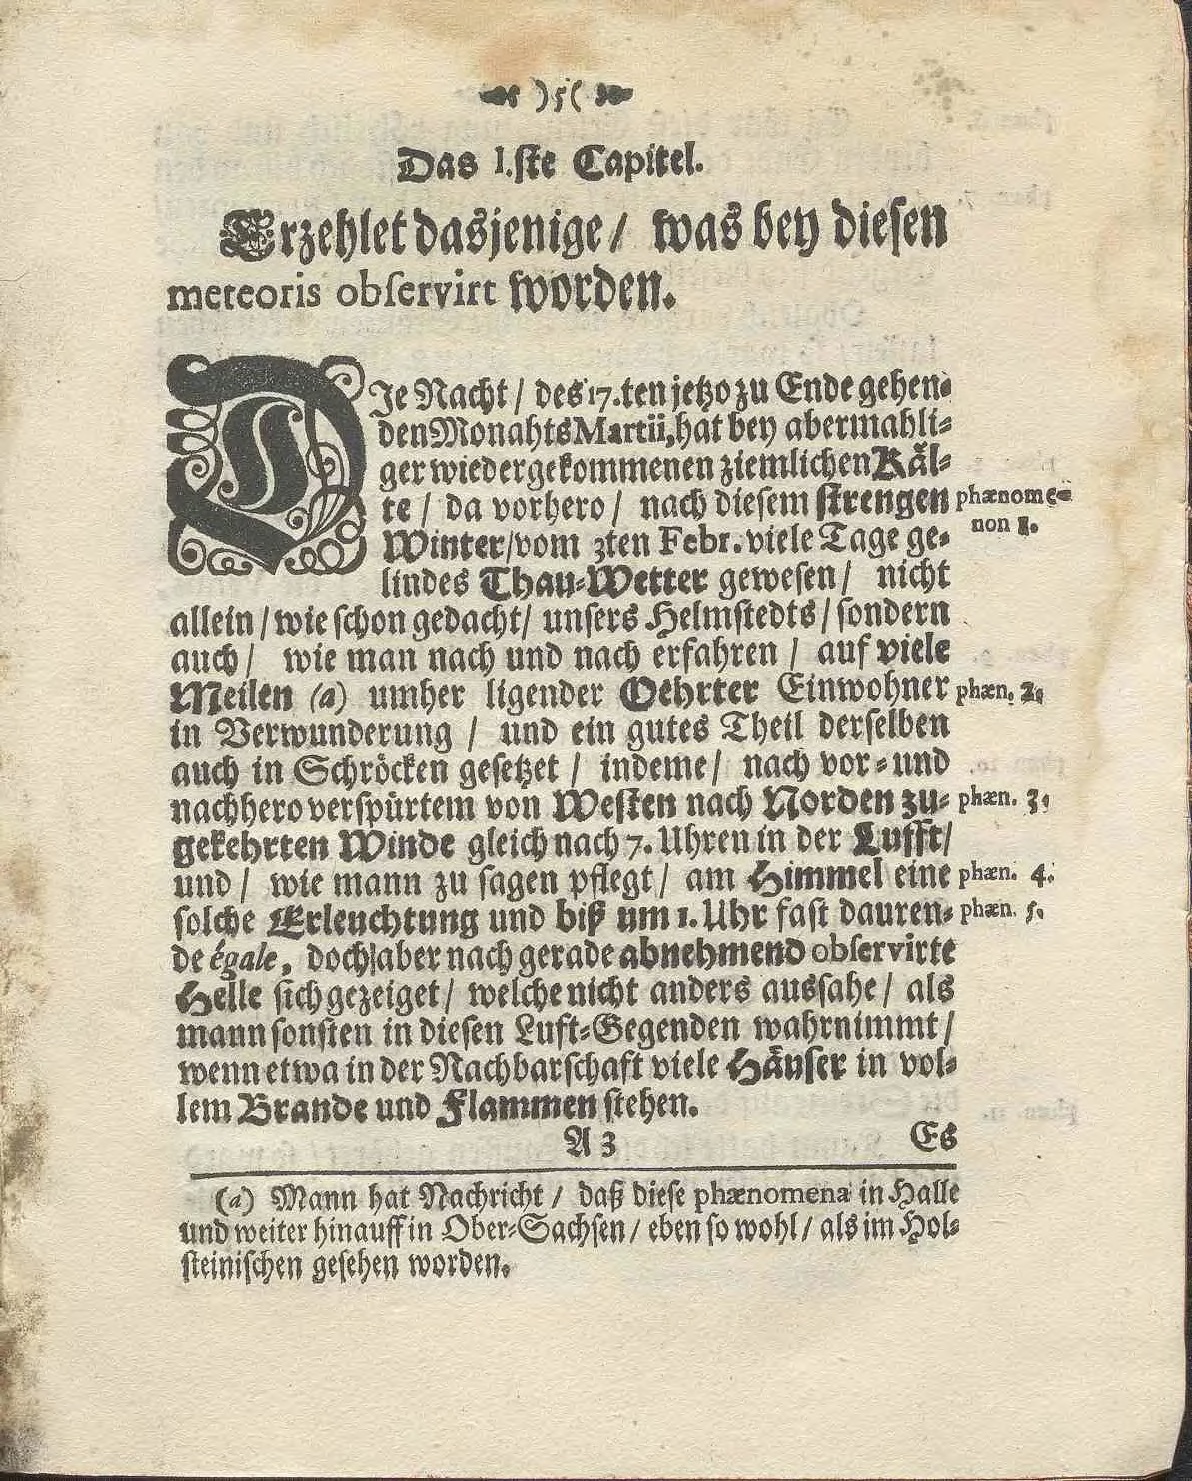 )5(
Das I.ste Capitel.
Erzehlet dasjenige / was bey diesen
meteoris observirt worden.
DIe Nacht / des 17.ten jetzo zu Ende gehen-
den Monahts Martii, hat bey abermahli-
ger wiedergekommenen ziemlichen Käl-
te / da vorhero / nach diesem strengen
phænome-
non 1.
Winter / vom 3ten Febr. viele Tage ge-
lindes Thau-Wetter gewesen / nicht
allein / wie schon gedacht / unsers Helmstedts / sondern
auch / wie man nach und nach erfahren / auf viele
Meilen (a) umher ligender Oehrter Einwohner
phæn. 2.
in Verwunderung / und ein gutes Theil derselben
auch in Schröcken gesetzet / indeme / nach vor- und
nachhero verspürtem von Westen nach Norden zu-
phæn. 3.
gekehrten Winde gleich nach 7. Uhren in der Lufft /
und / wie mann zu sagen pflegt / am Himmel eine
phæn. 4.
solche Erleuchtung und biß um 1. Uhr fast dauren-
phæn. 5.
de égale, doch aber nach gerade abnehmend observirte
Helle sich gezeiget / welche nicht anders aussahe / als
mann sonsten in diesen Luft-Gegenden wahrnimmt /
wenn etwa in der Nachbarschaft viele Häuser in vol-
lem Brande und Flammen stehen.
A 3
Es
(a) Mann hat Nachricht / daß diese phænomena in Halle
und weiter hinauff in Ober-Sachsen / eben so wohl / als im Hol-
steinischen gesehen worden.